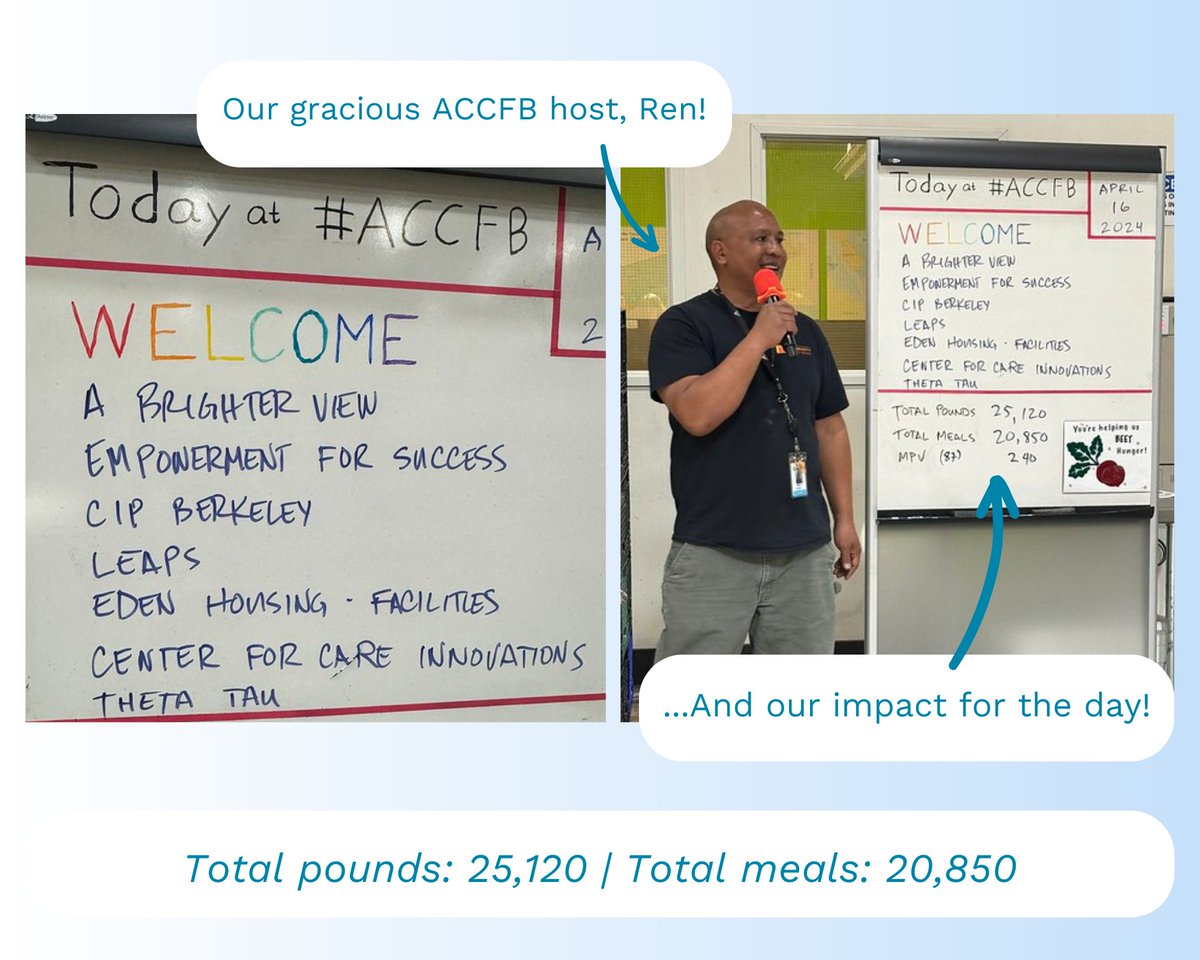 Our gracious ACCFB host, Ren!
Today at #ACCFB
A
2
WELCOME
A BRIGHTER VIEW
EMPOWERMENT FOR SUCCESS
CIP BERKELEY
LEAPS
EDEN HOUSING - FACILITIES
CENTER FOR CARE INNOVATIONS
THETA TAU
Today at #ACCFB
APRIL
16
2024
WELCOME
A BRIGHTER VIEW
EMPOWERMENT FOR SUCCESS
CIP BERKELEY
LEAPS
EDEN HOUSING - FACILITIES
CENTER FOR CARE INNOVATIONS
THETA TAU
TOTAL POUNDS 25,120
TOTAL MEALS 20,850
MPV (87) 240
You're helping us
BEET
Hunger!
...And our impact for the day!
Total pounds: 25,120 | Total meals: 20,850